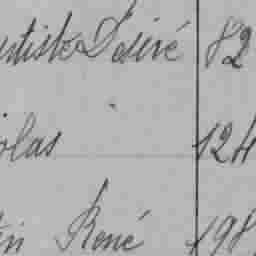 utiste Désiré 82
olas 124
in René 198